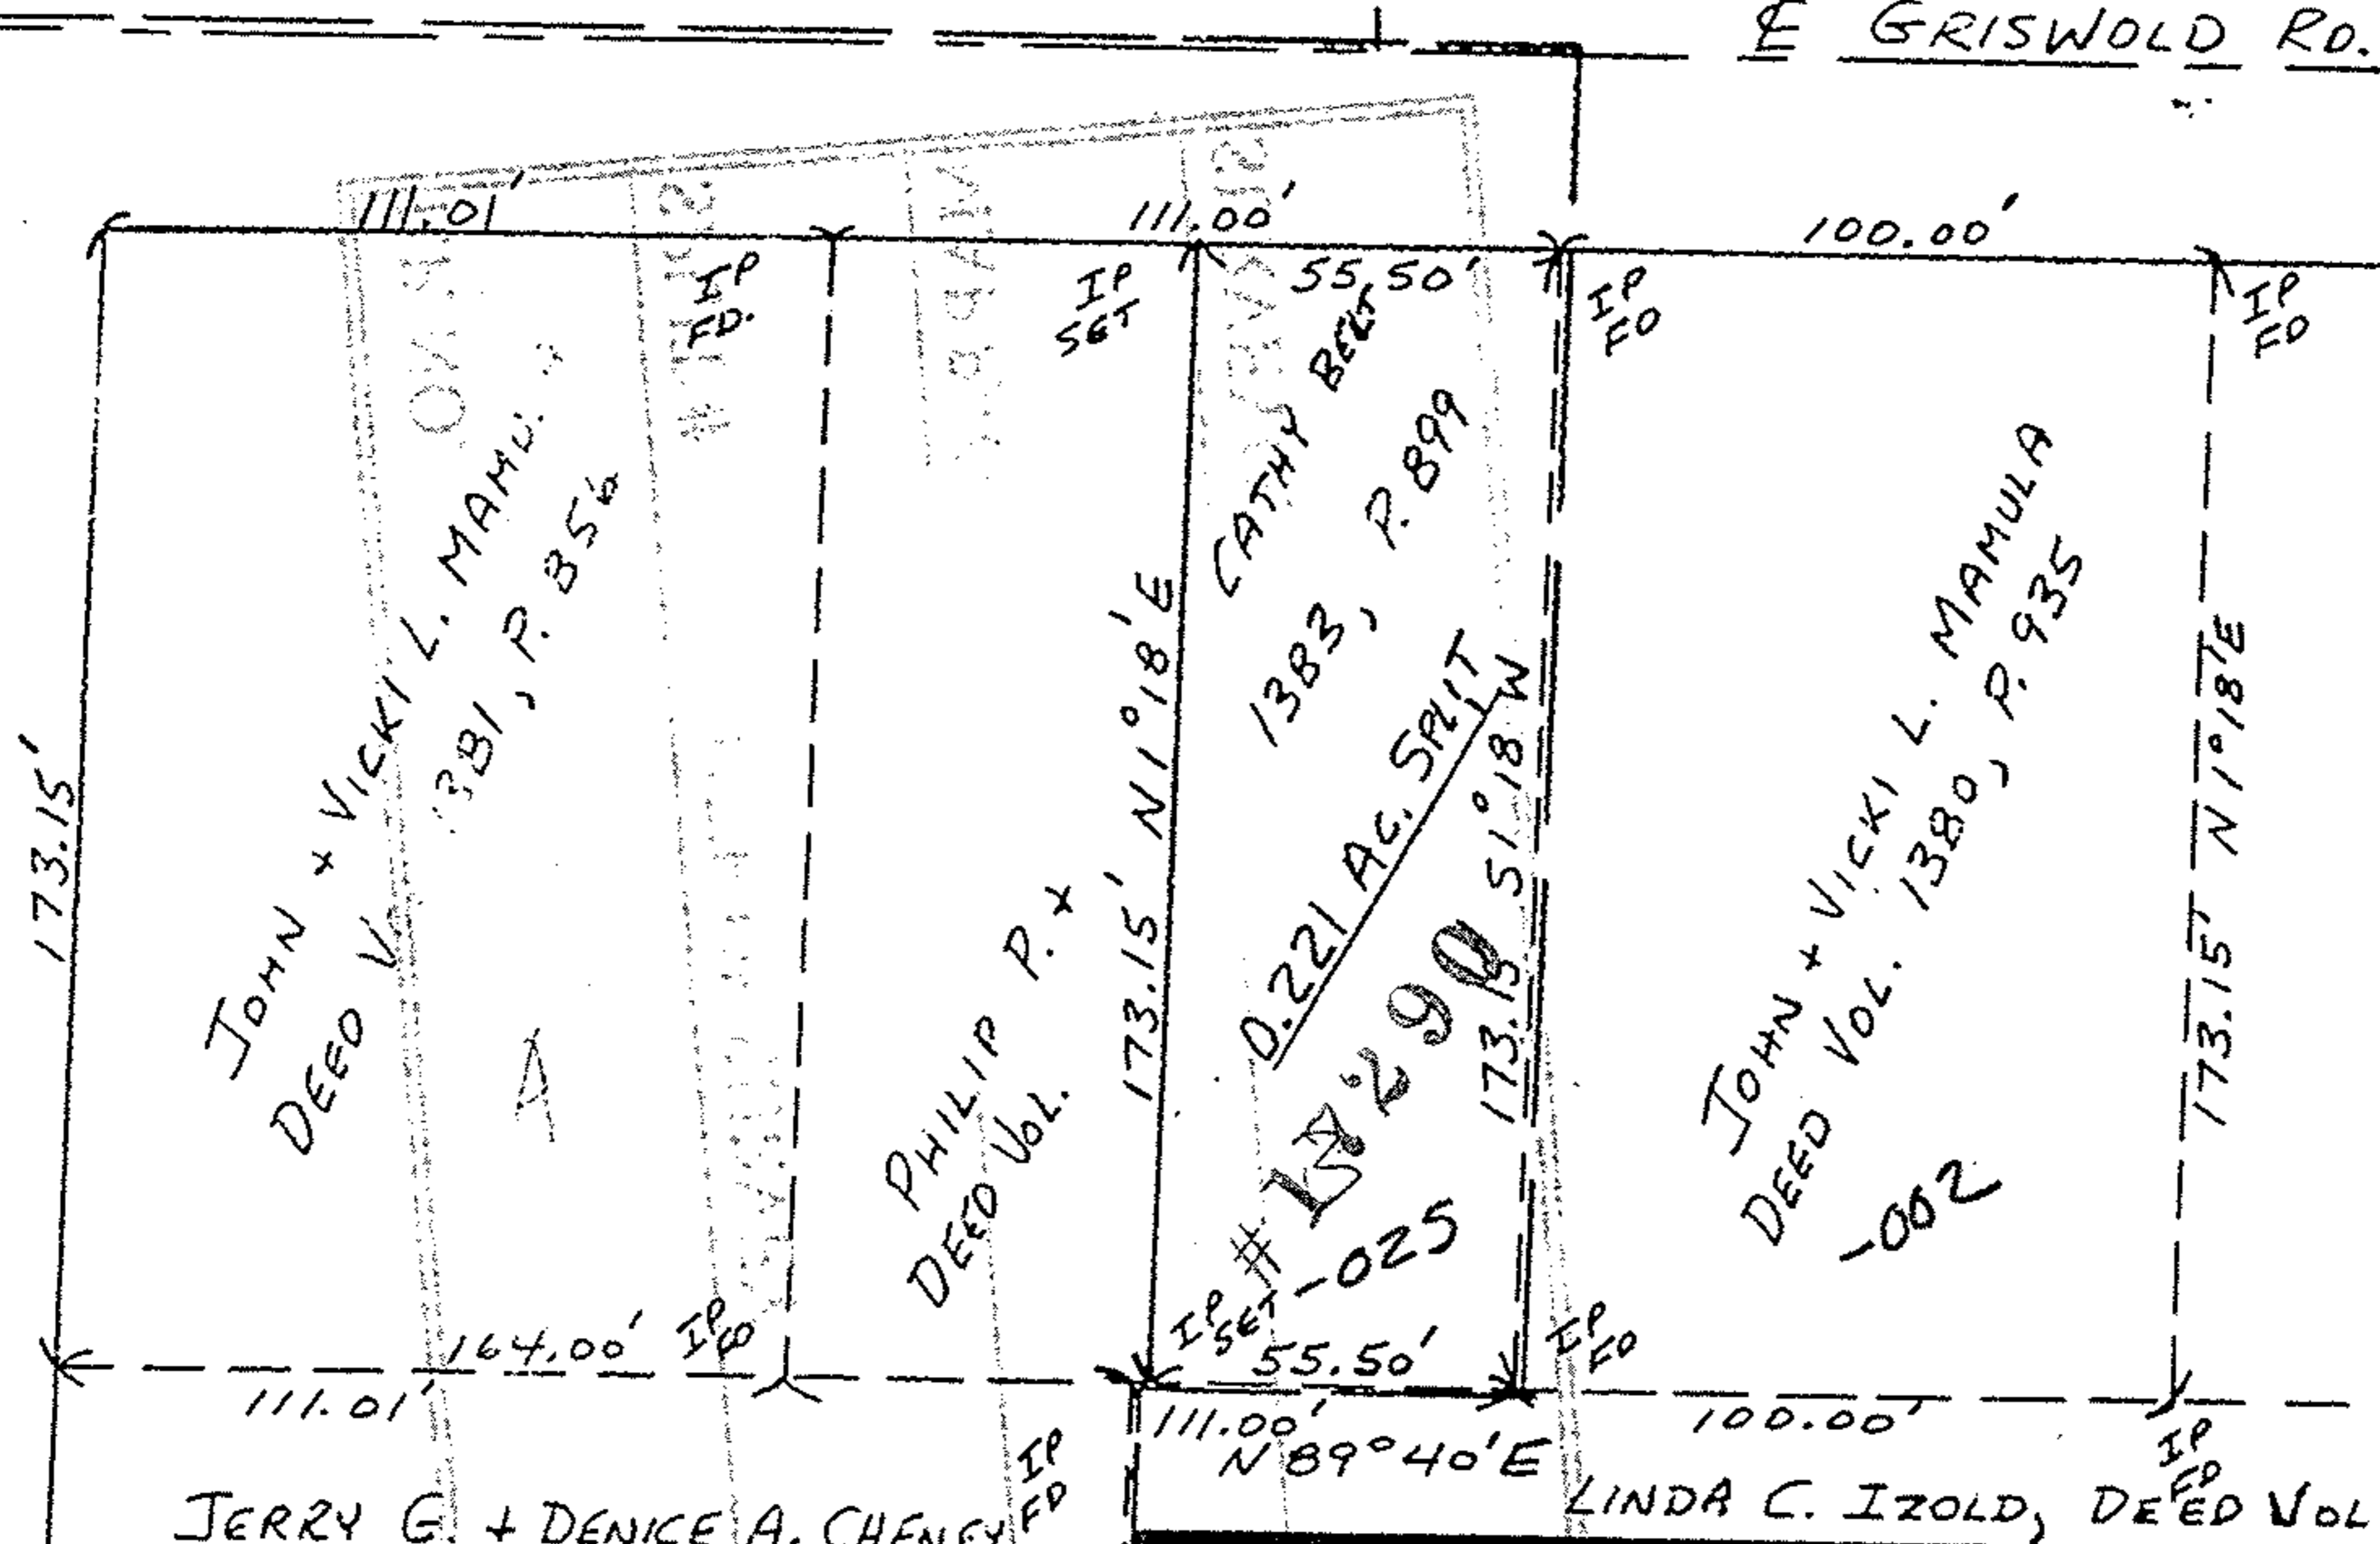 ℄ GRISWOLD RD.
111.01'
111.00'
100.00'
IP FD.
IP SET
55.50'
IP FD
IP FD
JOHN + VICKI L.
DEED
381, P. 856
173.15'
PHILIP P. +
DEED VOL.
173.15' N1°18'E
CATHY BELT
1383, P. 899
0.221 AC. SPLIT
173.15' S1°18'W
#
-025
JOHN + VICKI L. MAMULA
DEED VOL. 1380, P. 935
-002
173.15' N1°18'E
A
164.00'
IP
111.01'
IP SET
55.50'
IP FD
111.00'
N89°40'E
100.00'
IP FD
IP FD
JERRY G. + DENICE A. CHENEY
LINDA C. IZOLD, DEED VOL